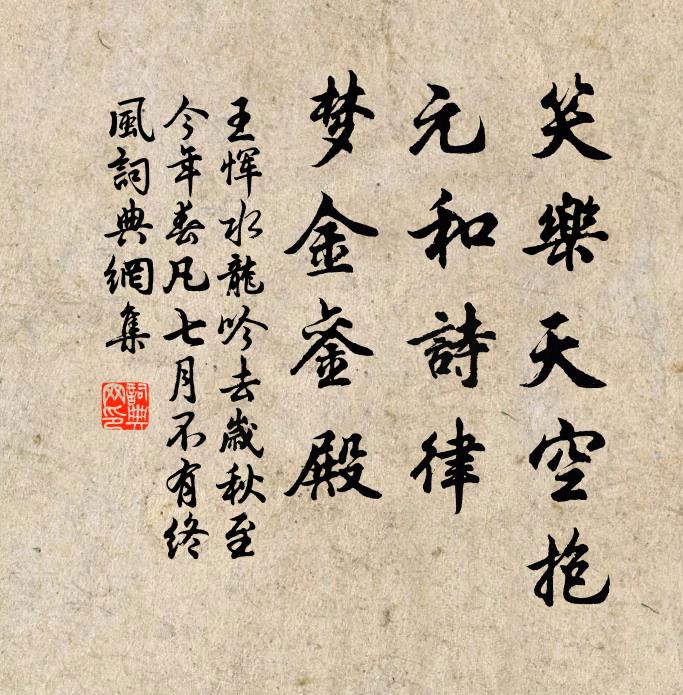 笑樂天空抱
元和詩律
梦金銮殿
王恽水龍吟去歲秋至
今年春凡七月不有終
風詞典網集
詞典
网印